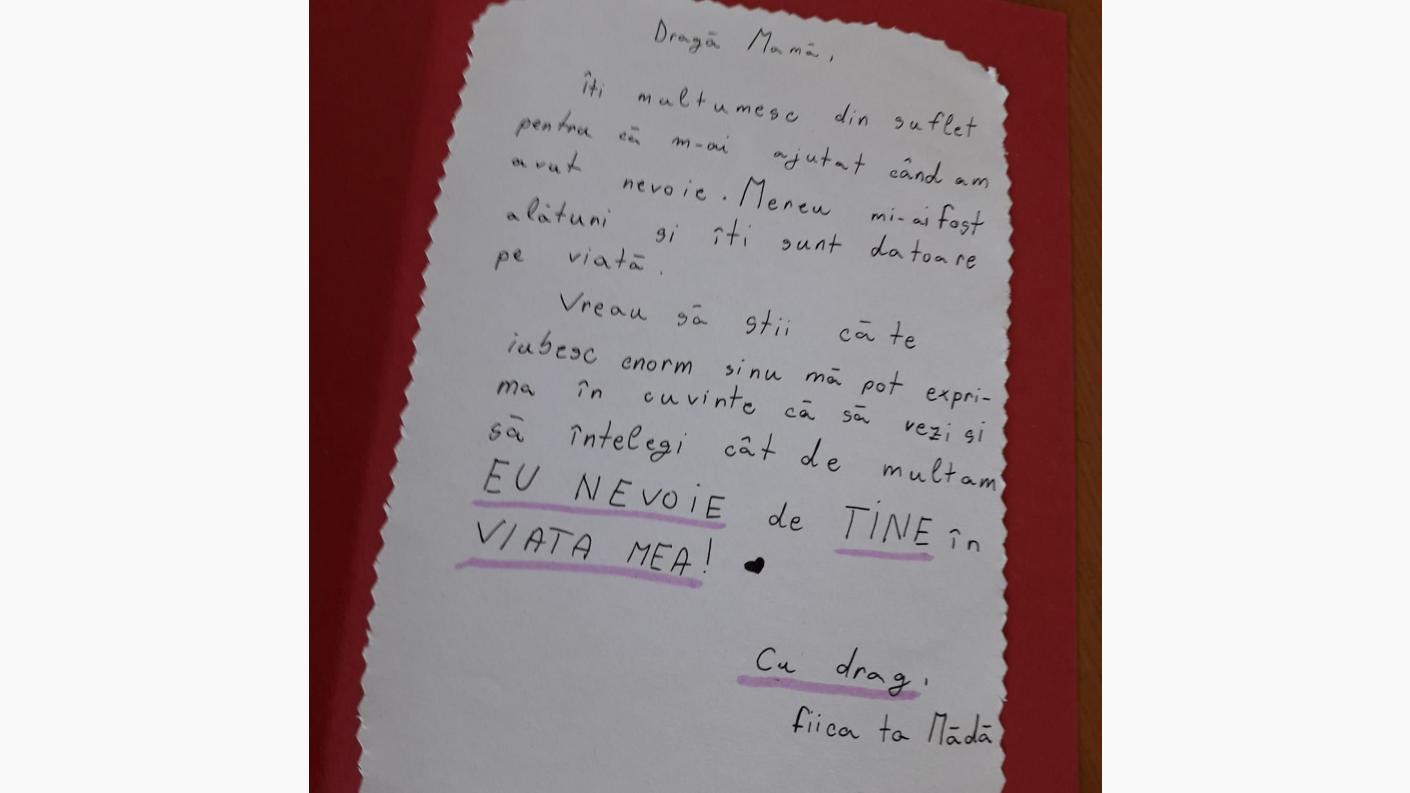 Dragā Mamā,
îti multumesc din suflet
pentru cā m-ai ajutat când am
avut nevoie. Mereu mi-ai fost
alāturi si îti sunt datoare
pe viatā.
Vreau sā stii cā te
iubesc enorm si nu mā pot expri-
ma în cuvinte cā sā vezi si
sā întelegi cât de mult am
EU NEVOIE de TINE în
VIATA MEA!
Cu drag,
fiica ta Mādā